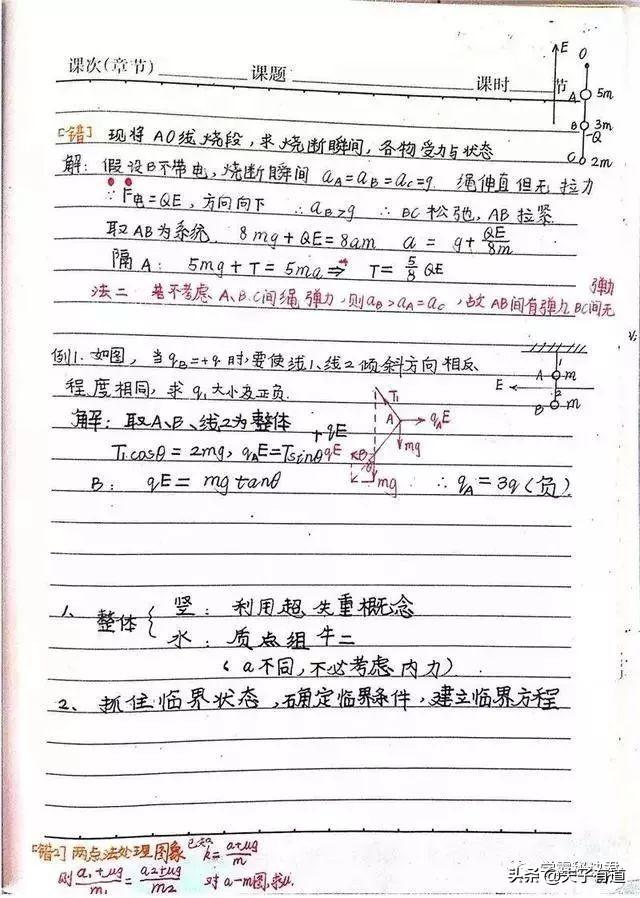 课次(章节)________ 课题________ 课时____节
E O
A 5m
B 3m
-Q
C 2m
[错] 现将AO线烧段,求烧断瞬间,各物受力与状态
解:假设B不带电,烧断瞬间 aA=aB=aC=g. 绳伸直但无拉力
∵F电=QE,方向向下 ∴aB>g ∴BC松弛,AB拉紧
取AB为系统. 8mg+QE=8am a=g+QE/8m
隔A: 5mg+T=5ma⇒ T=5/8 QE
弹力
法二 若不考虑A、B、C间绳弹力,则aB>aA=aC,故AB间有弹力BC间无
例1.如图,当qB=+q时,要使线1、线2倾斜方向相反
程度相同,求q1大小及正负.
E A m
B m
1
2
解:取A、B、线2为整体
T1cosθ=2mg, qAE=Tsinθ
+qE
qE
B: qE=mgtanθ ∴qA=3q(负)
T1 A qAE
mg
B
mg
1、整体{竖:利用超失重概念
水:质点组牛二
(a不同,不必考虑内力).
2、抓住临界状态,确定临界条件,建立临界方程
[错2]两点法处理图象 已知 k=a+μg/m
则 a1+μg/m1=a2+μg/m2 对a-m图,求μ.
头条@夫子有道